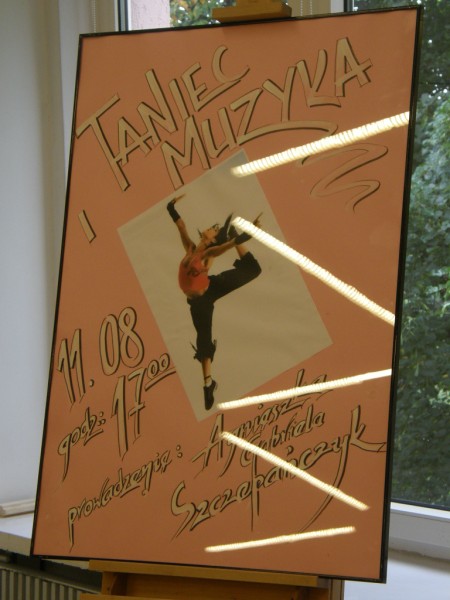 TANIEC
I MUZYKA
11.08
godz.: 17⁰⁰
prowadzenie:
Agnieszka
Gabriela
Szczepańczyk